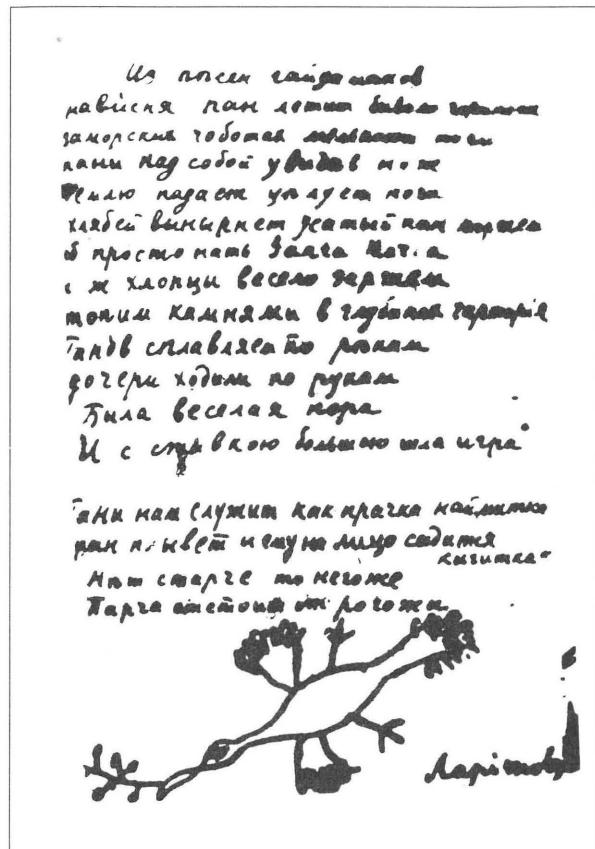 Из писен гайдамаков
нависня пан летит бывало горинож
заморских чоботах мелькают ноги
пани над собой увидев нож
землю падает целует ноги
хлябей вынырнет усатый пан моржем
б простонать
ж хлопцы весело заржем
топим камнями в глубинах чарторія
панов сплавляем по рѣкам
дочери ходили по рукам
Была веселая пора
И с ставкою большою шла игра
пани нам служит как прачка наймитка
пан плывет и ему на лицо садится
кигитка
Нѣт старче то негоже
Парча отстоит от рогожи
Ларіонов